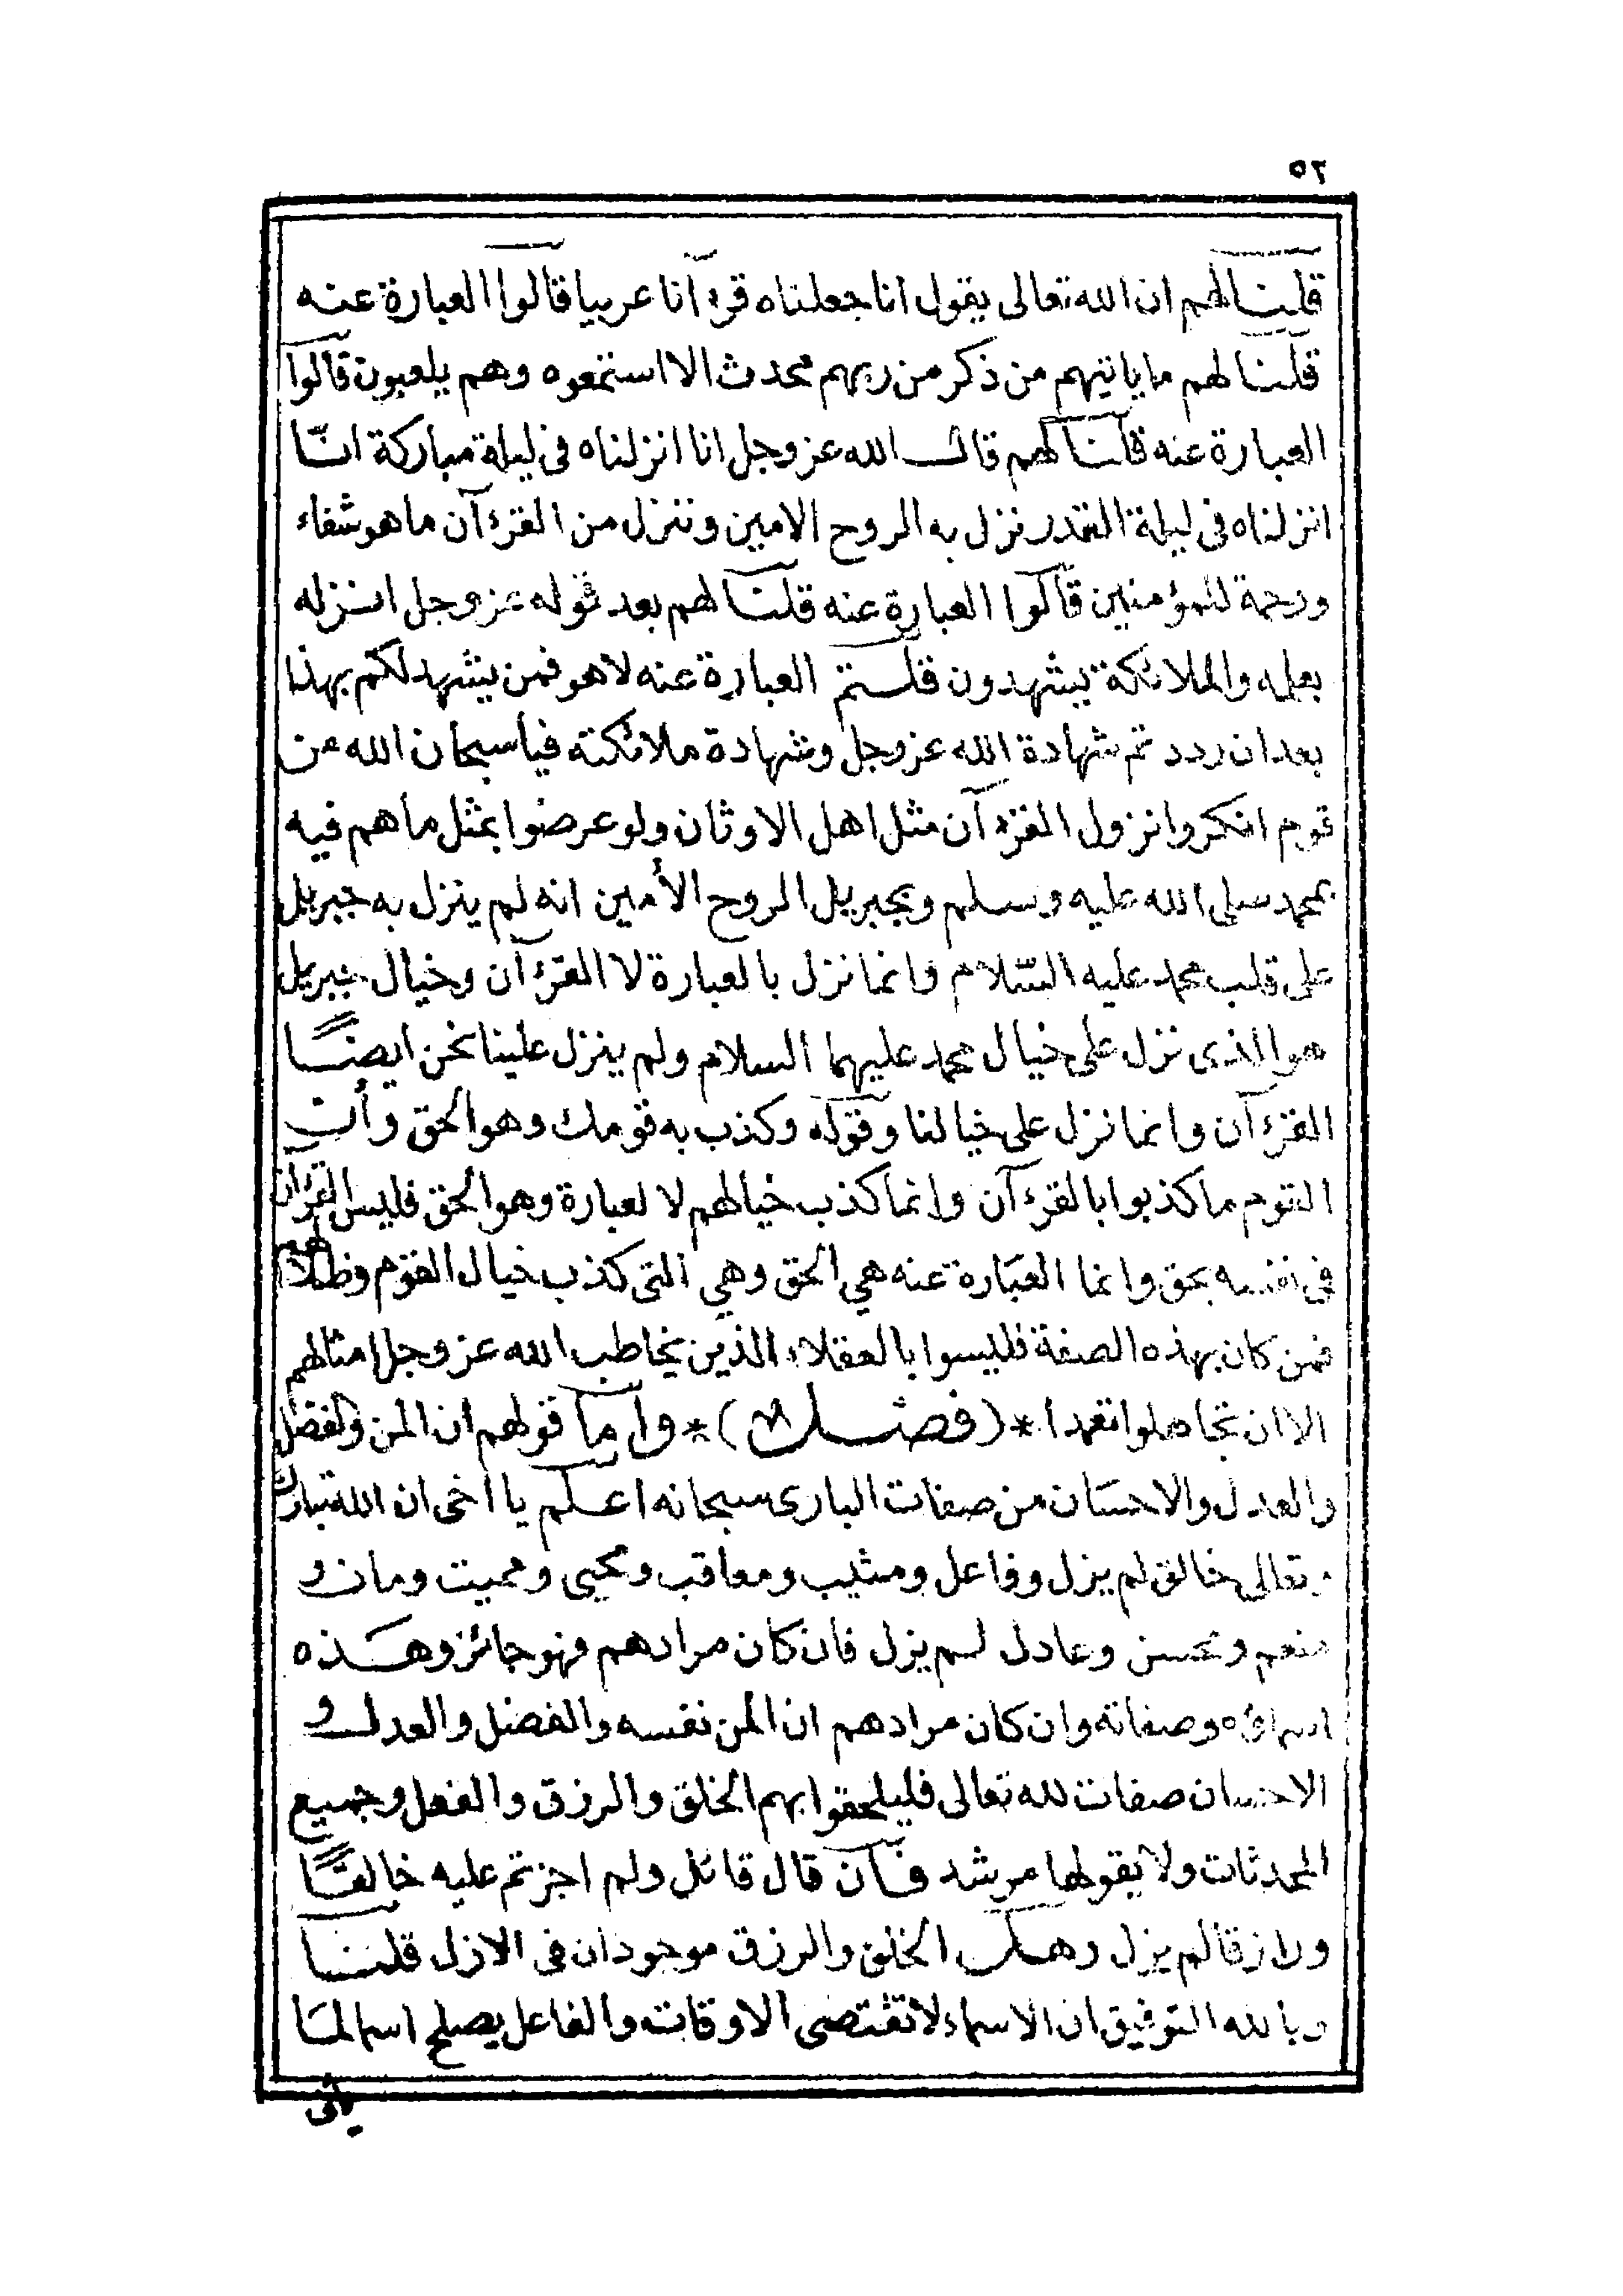 ٥٢
قلنا لهم ان الله تعالى يقول انا جعلناه قرءآنا عربيا قالوا العبارة عنه
قلنا لهم ما ياتيهم من ذكر من ربهم محدث الا استمعوه وهم يلعبون قالوا
العبارة عنه قلنا لهم قال الله عز وجل انا انزلناه فى ليلة مباركة انّا
انزلناه فى ليلة القدر نزل به الروح الامين وننزل من القرءآن ما هو شفاء
ورحمة للمؤمنين قالوا العبارة عنه قلنا لهم بعد قوله عز وجل انزله
بعلمه والملائكة يشهدون قلتم العبارة عنه لا هو فمن يشهد لكم بهذا
بعد ان رددتم شهادة الله عز وجل وشهادة ملائكته فيا سبحان الله من
قوم انكروا نزول القرءآن مثل اهل الاوثان ولو عرضوا بمثل ما هم فيه
بمحمد صلى الله عليه وسلم وبجبريل الروح الأمين انه لم ينزل به جبريل
على قلب محمد عليه السّلام وانما نزل بالعبارة لا القرءآن وخيال جبريل
هو الذى نزل على خيال محمد عليهما السلام ولم ينزل علينا نحن ايضًا
القرءآن وانما نزل على خيالنا وقوله وكذب به قومك وهو الحق وأن
القوم ما كذبوا بالقرءآن وانما كذب خيالهم لا لعبارة وهو الحق فليس القرءان
فى نفسه بحق وانما العبارة عنه هي الحق وهي التى كذب خيال القوم وظلالهم
فمن كان بهذه الصفة فليسوا بالعقلاء الذين يخاطب الله عز وجل امثالهم
الا ان تجاهلوا تعمدا *(فصل)* وأما قولهم ان المن والفضل
والعدل والاحسان من صفات البارى سبحانه اعلم يا أخى ان الله تبارك
وتعالى خالق لم يزل وفاعل ومثيب ومعاقب ومحيى ومميت ومان و
منعم ومحسن وعادل لم يزل فان كان مرادهم فهو جائز وهذه
اسماؤه وصفاته وان كان مرادهم ان المن نفسه والفضل والعدل و
الاحسان صفات لله تعالى فليلحقوا بهم الخلق والرزق والفعل وجميع
المحدثات ولا يقولها مرشد فان قال قائل ولم اجزتم عليه خالقًا
ورازقا لم يزل وهل الخلق والرزق موجودان فى الازل قلنا
وبالله التوفيق ان الاسماء لا تقتضى الاوقات والفاعل يصلح اسما لمَا